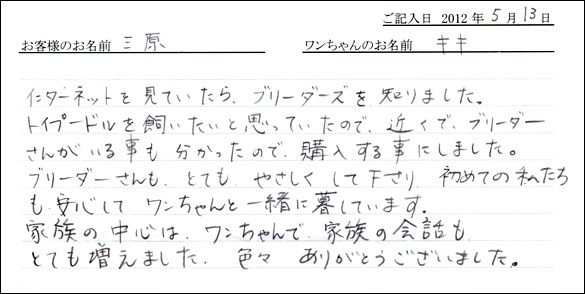 ご記入日 2012年5月13日
お客様のお名前 三原 ワンちゃんのお名前 キキ
インターネットを見ていたら、ブリーダーズを知りました。
トイプードルを飼いたいと思っていたので、近くで、ブリーダー
さんがいる事も分かったので、購入する事にしました。
ブリーダーさんも、とても、やさしくして下さり、初めての私たち
も安心して、ワンちゃんと一緒に暮しています。
家族の中心は、ワンちゃんで、家族の会話も
とても増えました、色々ありがとうございました。